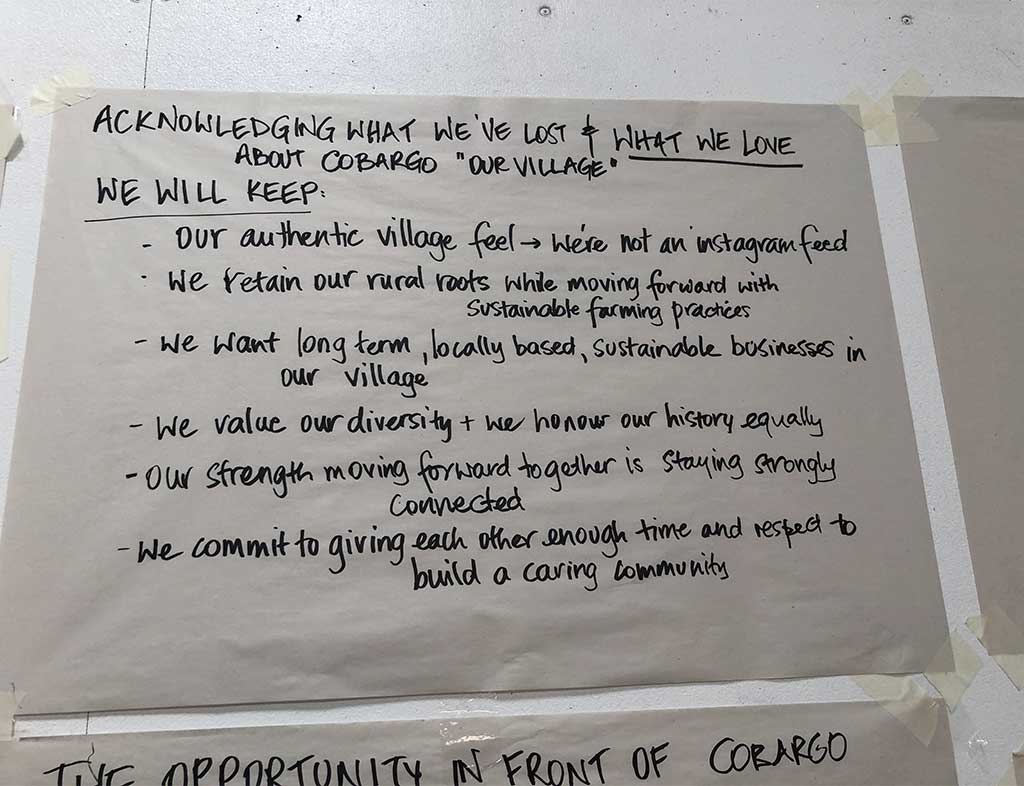 ACKNOWLEDGING WHAT WE'VE LOST & WHAT WE LOVE
ABOUT COBARGO "OUR VILLAGE"
WE WILL KEEP:
- our authentic village feel → we're not an instagram feed
- we retain our rural roots while moving forward with
sustainable farming practices
- we want long term, locally based, sustainable businesses in
our village
- we value our diversity + we honour our history equally
- our strength moving forward together is staying strongly
connected
- we commit to giving each other enough time and respect to
build a caring community
THE OPPORTUNITY IN FRONT OF COBARGO